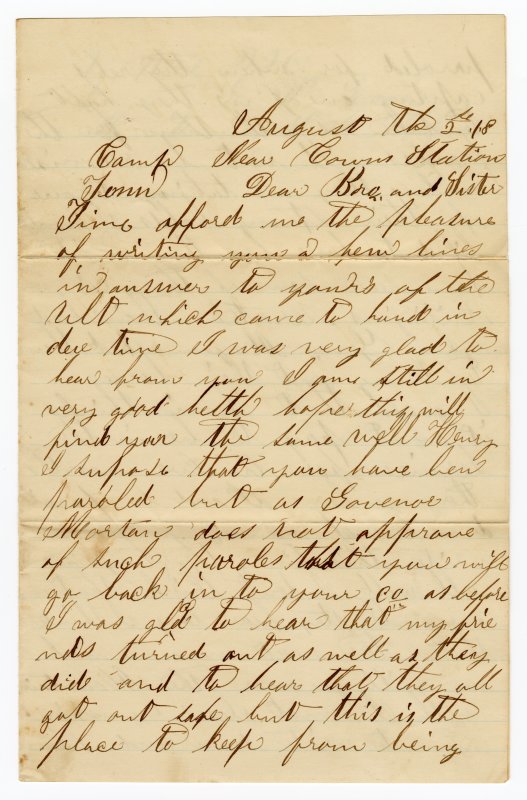 August Th 2th /18
Camp Near Cowns Station
Tenn Dear Bro. and Sister
Time afford me the pleasure
of writing you a few lines
in answer to yours of the
ult which came to hand in
due time I was very glad to
hear from you I am still in
very good helth hopes this will
find you the same well Henry
I supose that you have ben
paroled but as Govenor
Mortan does not approve
of such paroles that you will
go back in to your co as before
I was gld to hear that my frie
nds turned out as well as they
did and to hear that they all
got out safe but this is the
place to keep from being